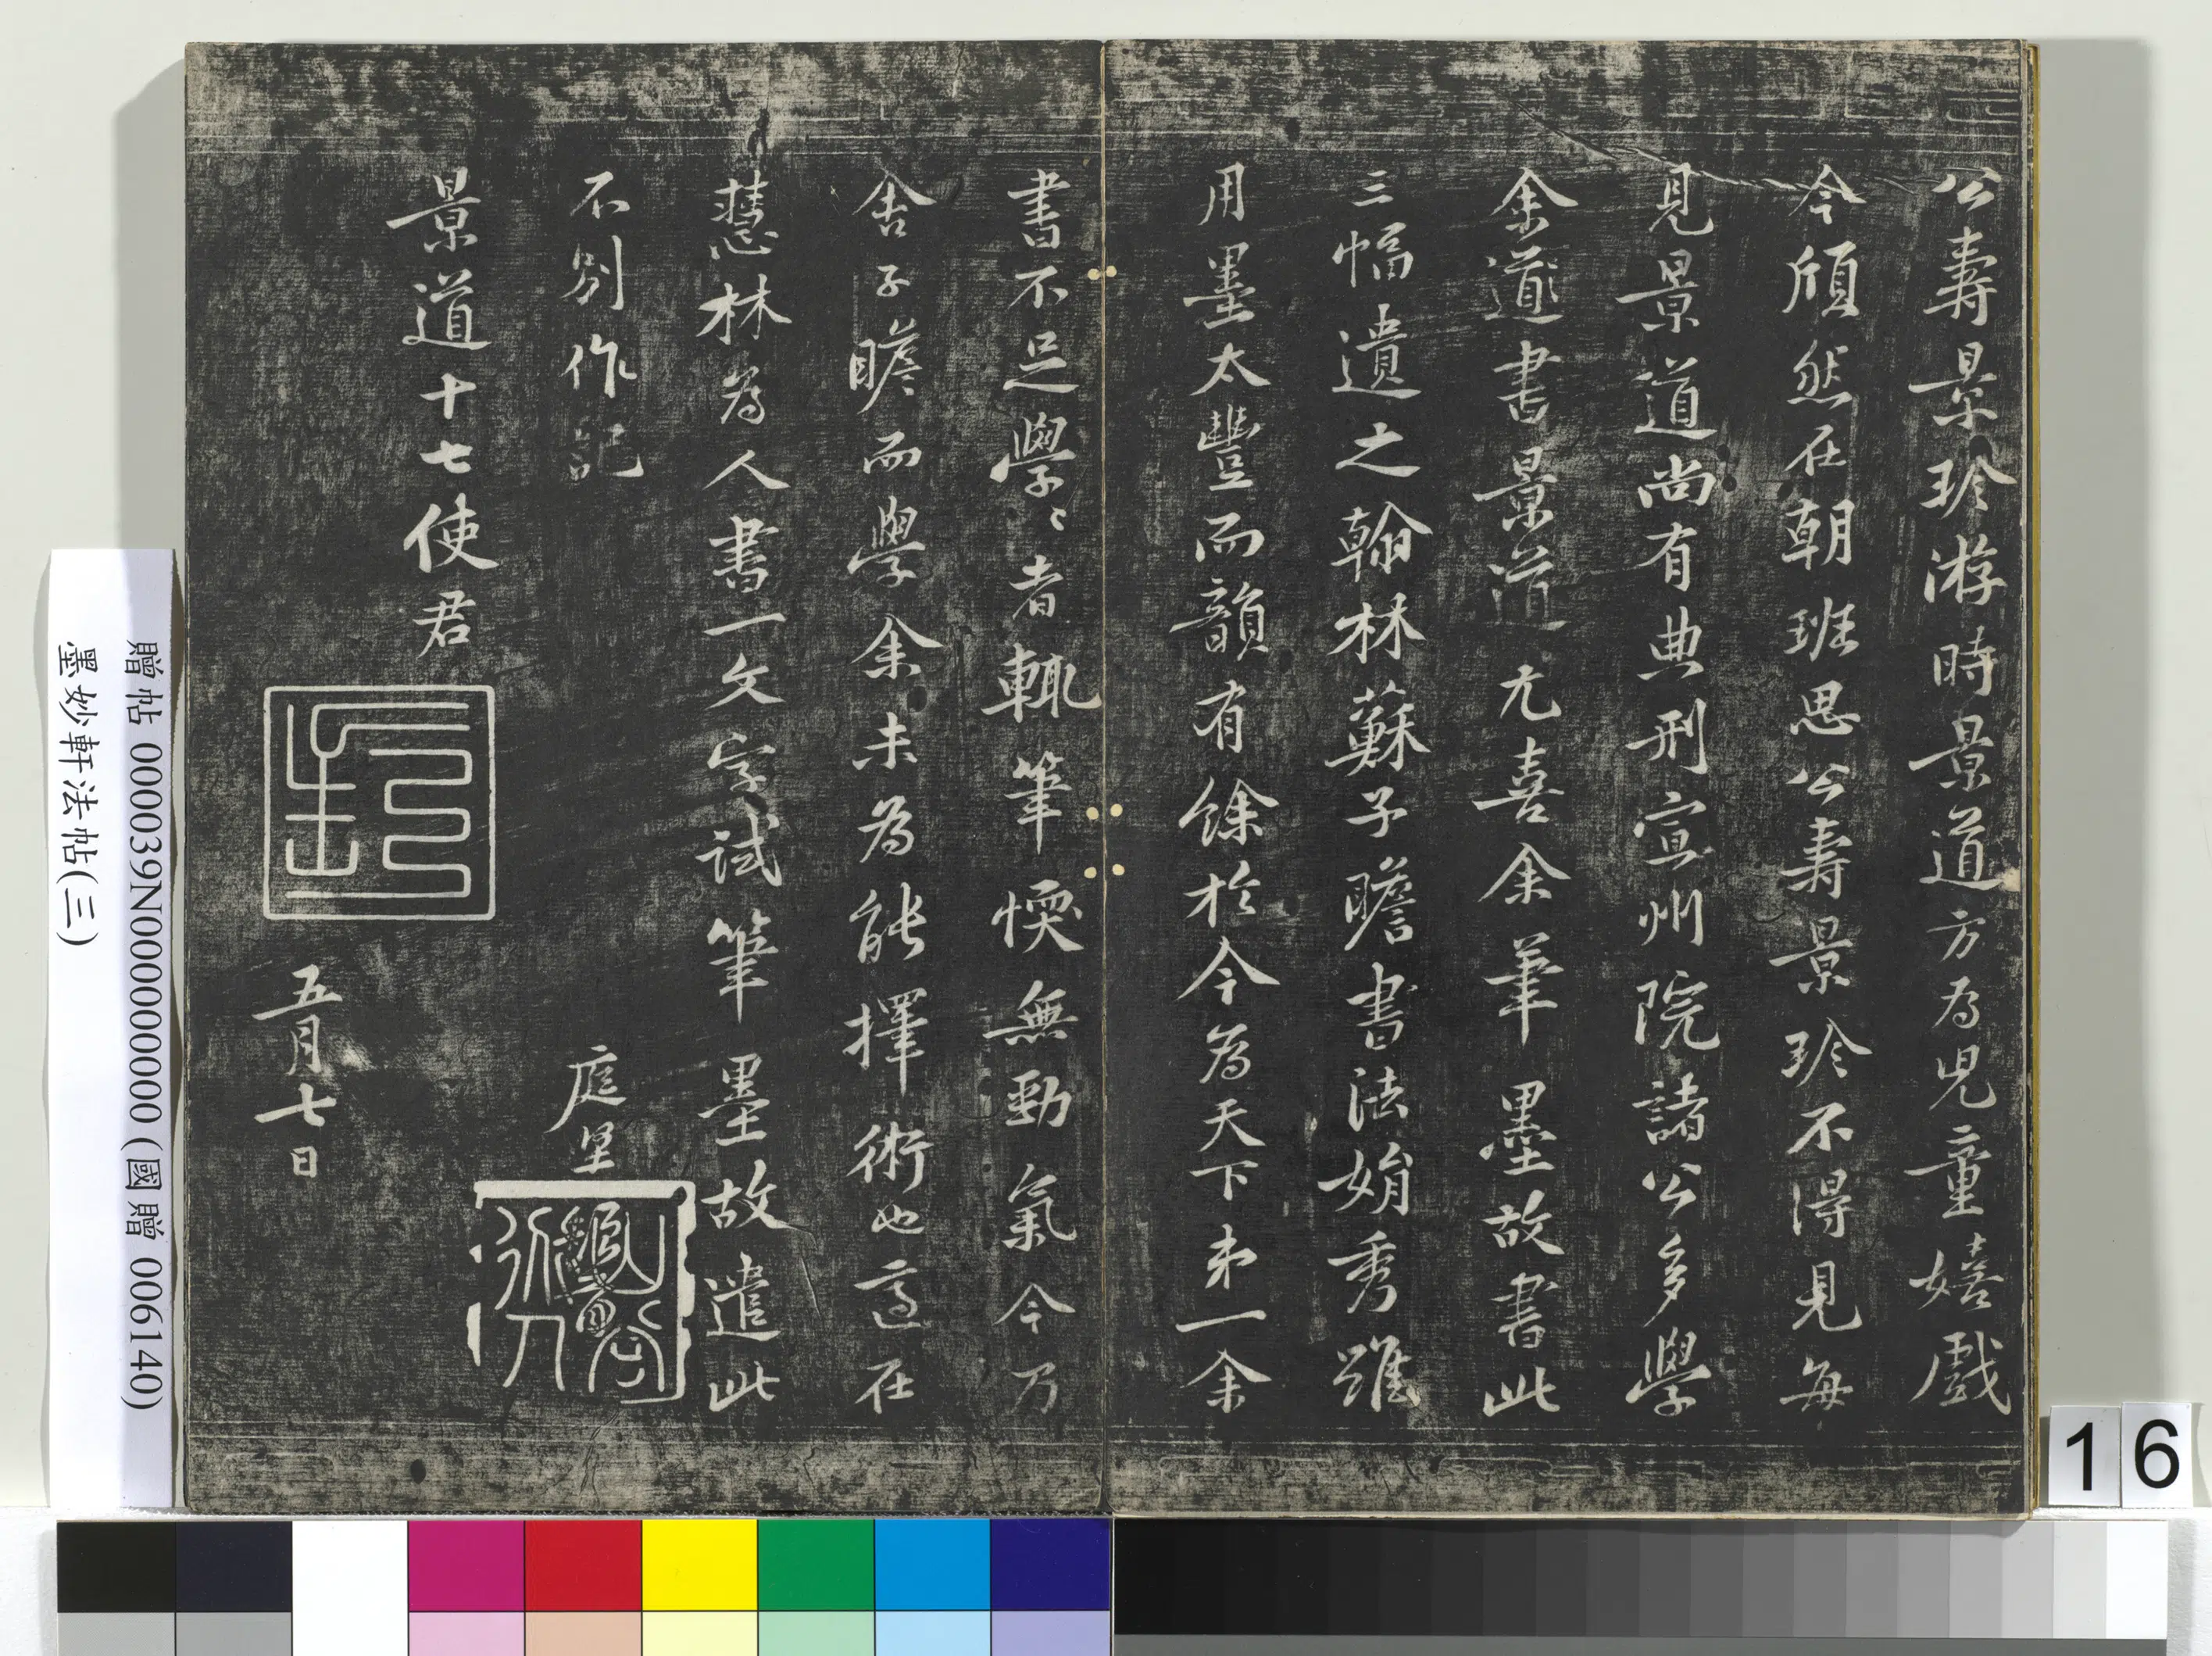 公壽景珍游時景道方為兒童嬉戲
今頎然在朝班思公壽景珍不得見每
見景道尚有典刑宣州院諸公多學
余道書景道尤喜余筆墨故書此
三幅遺之翰林蘇子瞻書法娟秀雖
用墨太豐而韻有餘於今為天下第一余
書不足學〻者輒筆愞無勁氣今乃
舍子瞻而學余未為能擇術也適在
慧林為人書一文字試筆墨故遣此
不別作記
庭堅
景道十七使君
五月七日
贈帖 000039N000000000 (國贈 006140)
墨妙軒法帖(三)
16